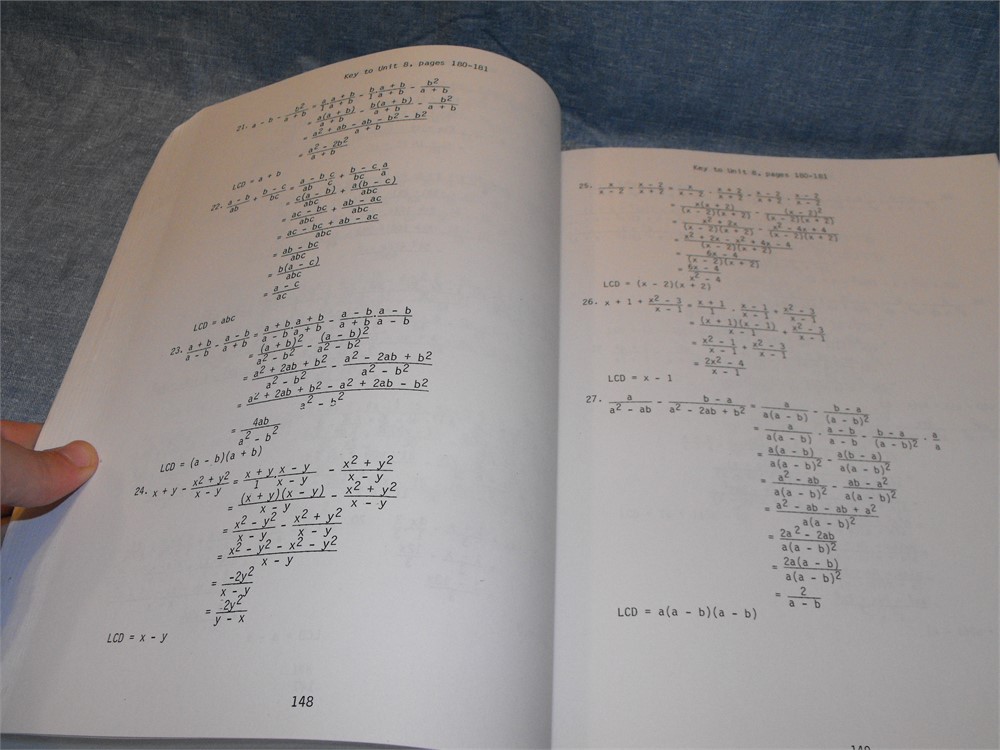 Key to Unit 8, pages 180-181
21. a - b - b²/(a + b) = a/1 · (a + b)/(a + b) - b/1 · (a + b)/(a + b) - b²/(a + b)
= a(a + b)/(a + b) - b(a + b)/(a + b) - b²/(a + b)
= (a² + ab - ab - b² - b²)/(a + b)
= (a² - 2b²)/(a + b)
LCD = a + b
22. (a - b)/ab + (b - c)/bc = (a - b)/ab · c/c + (b - c)/bc · a/a
= c(a - b)/abc + a(b - c)/abc
= (ac - bc)/abc + (ab - ac)/abc
= (ac - bc + ab - ac)/abc
= (ab - bc)/abc
= b(a - c)/abc
= (a - c)/ac
LCD = abc
23. (a + b)/(a - b) - (a - b)/(a + b) = (a + b)/(a - b) · (a + b)/(a + b) - (a - b)/(a + b) · (a - b)/(a - b)
= (a + b)²/(a² - b²) - (a - b)²/(a² - b²)
= (a² + 2ab + b²)/(a² - b²) - (a² - 2ab + b²)/(a² - b²)
= (a² + 2ab + b² - a² + 2ab - b²)/(a² - b²)
= 4ab/(a² - b²)
LCD = (a - b)(a + b)
24. x + y - (x² + y²)/(x - y) = (x + y)/1 · (x - y)/(x - y) - (x² + y²)/(x - y)
= (x + y)(x - y)/(x - y) - (x² + y²)/(x - y)
= (x² - y²)/(x - y) - (x² + y²)/(x - y)
= (x² - y² - x² - y²)/(x - y)
= -2y²/(x - y)
= 2y²/(y - x)
LCD = x - y
148
Key to Unit 8, pages 180-181
25. x/(x - 2) - (x - 2)/(x + 2) = x/(x - 2) · (x + 2)/(x + 2) - (x - 2)/(x + 2) · (x - 2)/(x - 2)
= x(x + 2)/(x - 2)(x + 2) - (x - 2)²/(x - 2)(x + 2)
= (x² + 2x)/(x - 2)(x + 2) - (x² - 4x + 4)/(x - 2)(x + 2)
= (x² + 2x - x² + 4x - 4)/(x - 2)(x + 2)
= (6x - 4)/(x - 2)(x + 2)
= (6x - 4)/(x² - 4)
LCD = (x - 2)(x + 2)
26. x + 1 + (x² - 3)/(x - 1) = (x + 1)/1 · (x - 1)/(x - 1) + (x² - 3)/(x - 1)
= (x + 1)(x - 1)/(x - 1) + (x² - 3)/(x - 1)
= (x² - 1)/(x - 1) + (x² - 3)/(x - 1)
= (2x² - 4)/(x - 1)
LCD = x - 1
27. a/(a² - ab) - (b - a)/(a² - 2ab + b²) = a/a(a - b) - (b - a)/(a - b)²
= a/a(a - b) · (a - b)/(a - b) - (b - a)/(a - b)² · a/a
= a(a - b)/a(a - b)² - a(b - a)/a(a - b)²
= (a² - ab)/a(a - b)² - (ab - a²)/a(a - b)²
= (a² - ab - ab + a²)/a(a - b)²
= (2a² - 2ab)/a(a - b)²
= 2a(a - b)/a(a - b)²
= 2/(a - b)
LCD = a(a - b)(a - b)